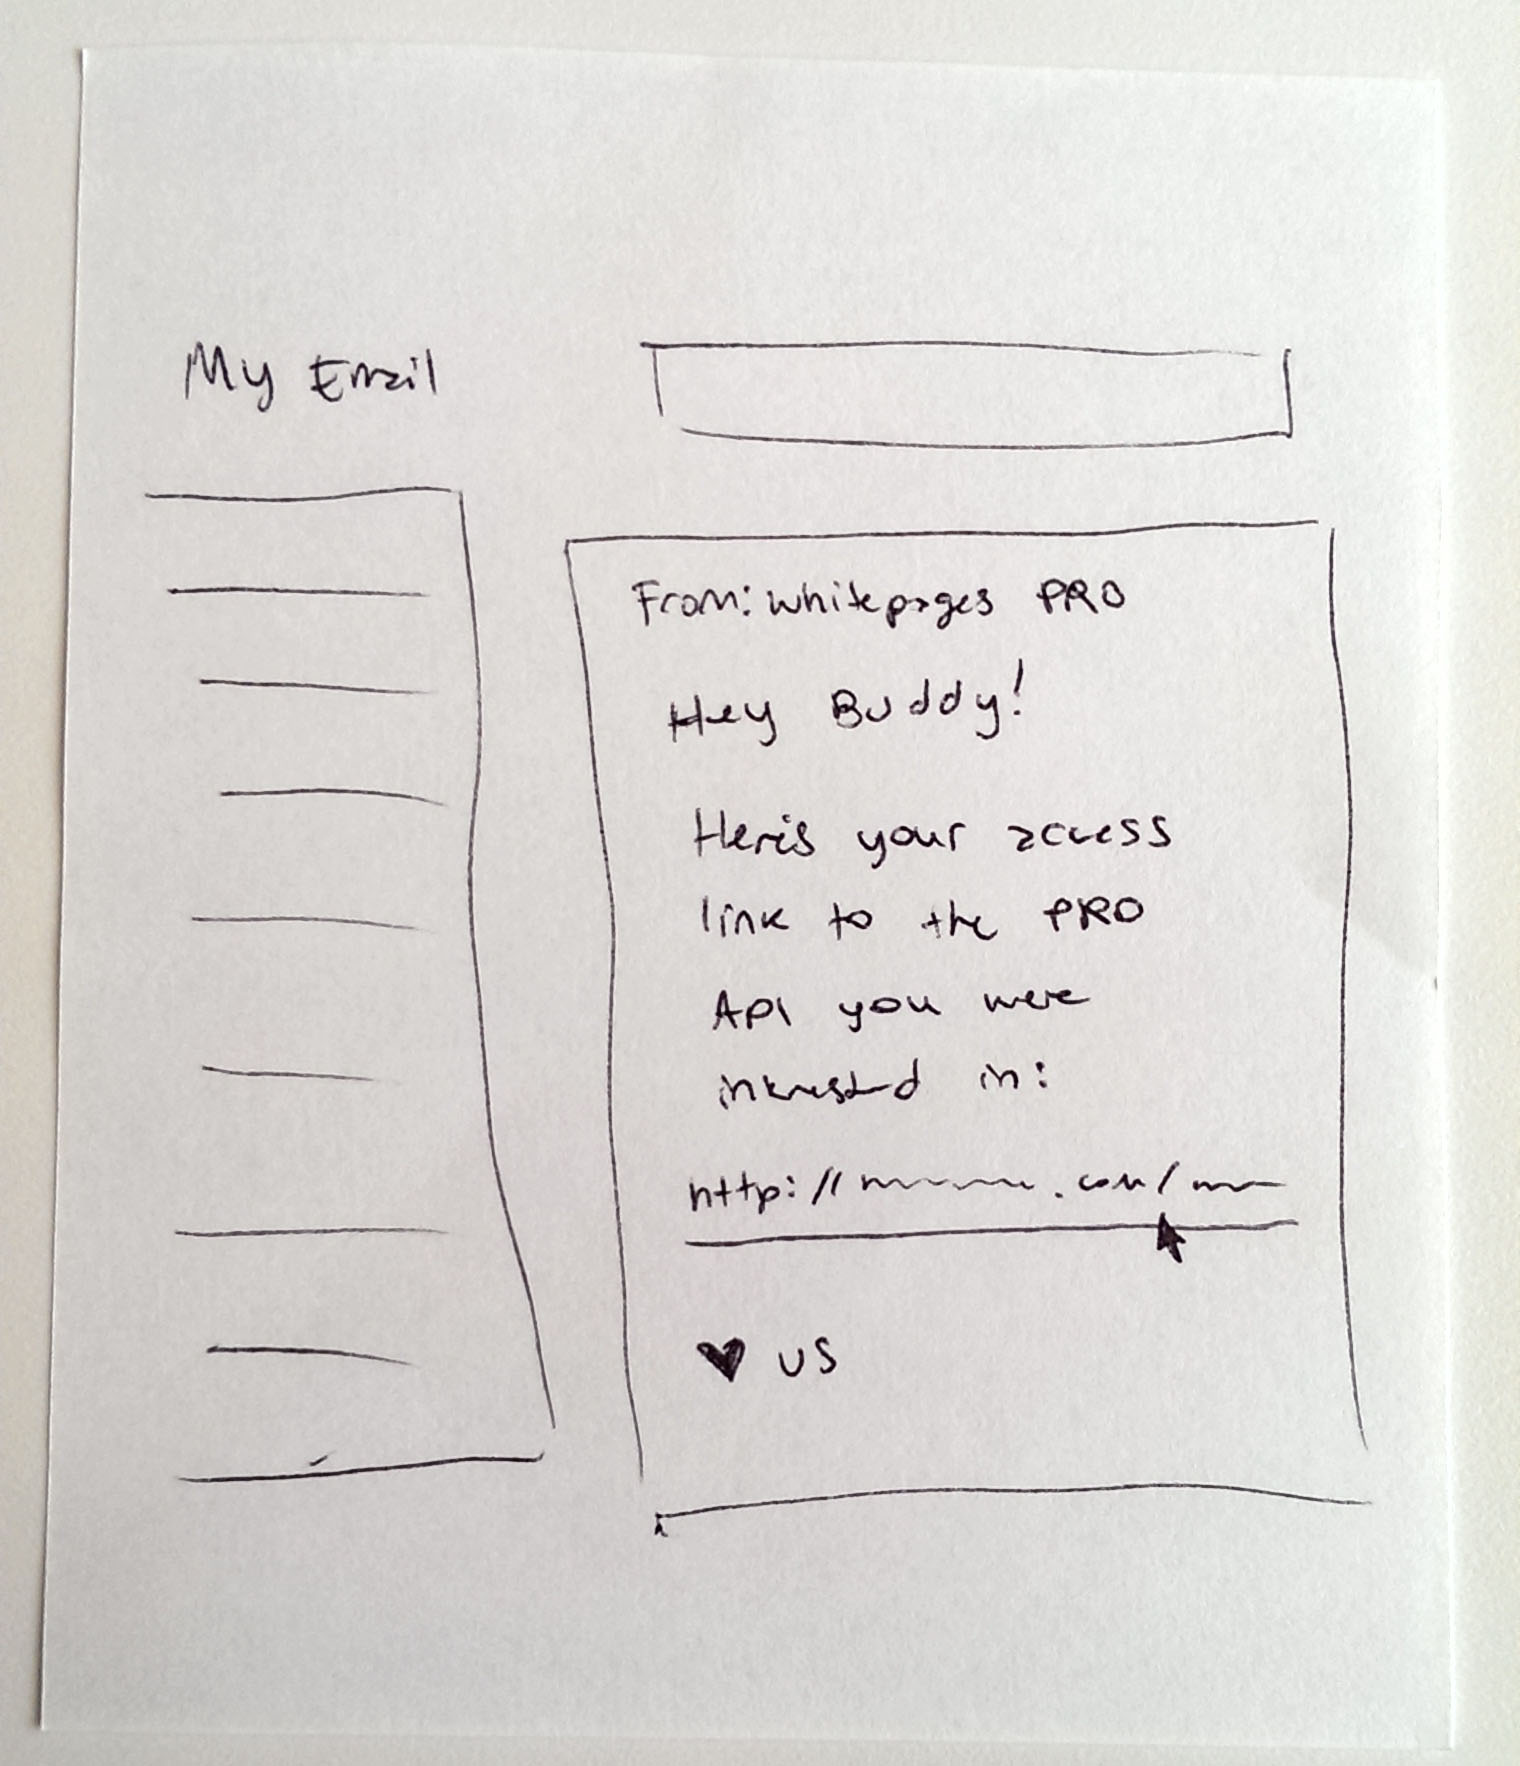 My Email
From: Whitepages PRO
Hey Buddy!
Here's your access
link to the PRO
API you were
interested in:
http:// .com/
♥ us